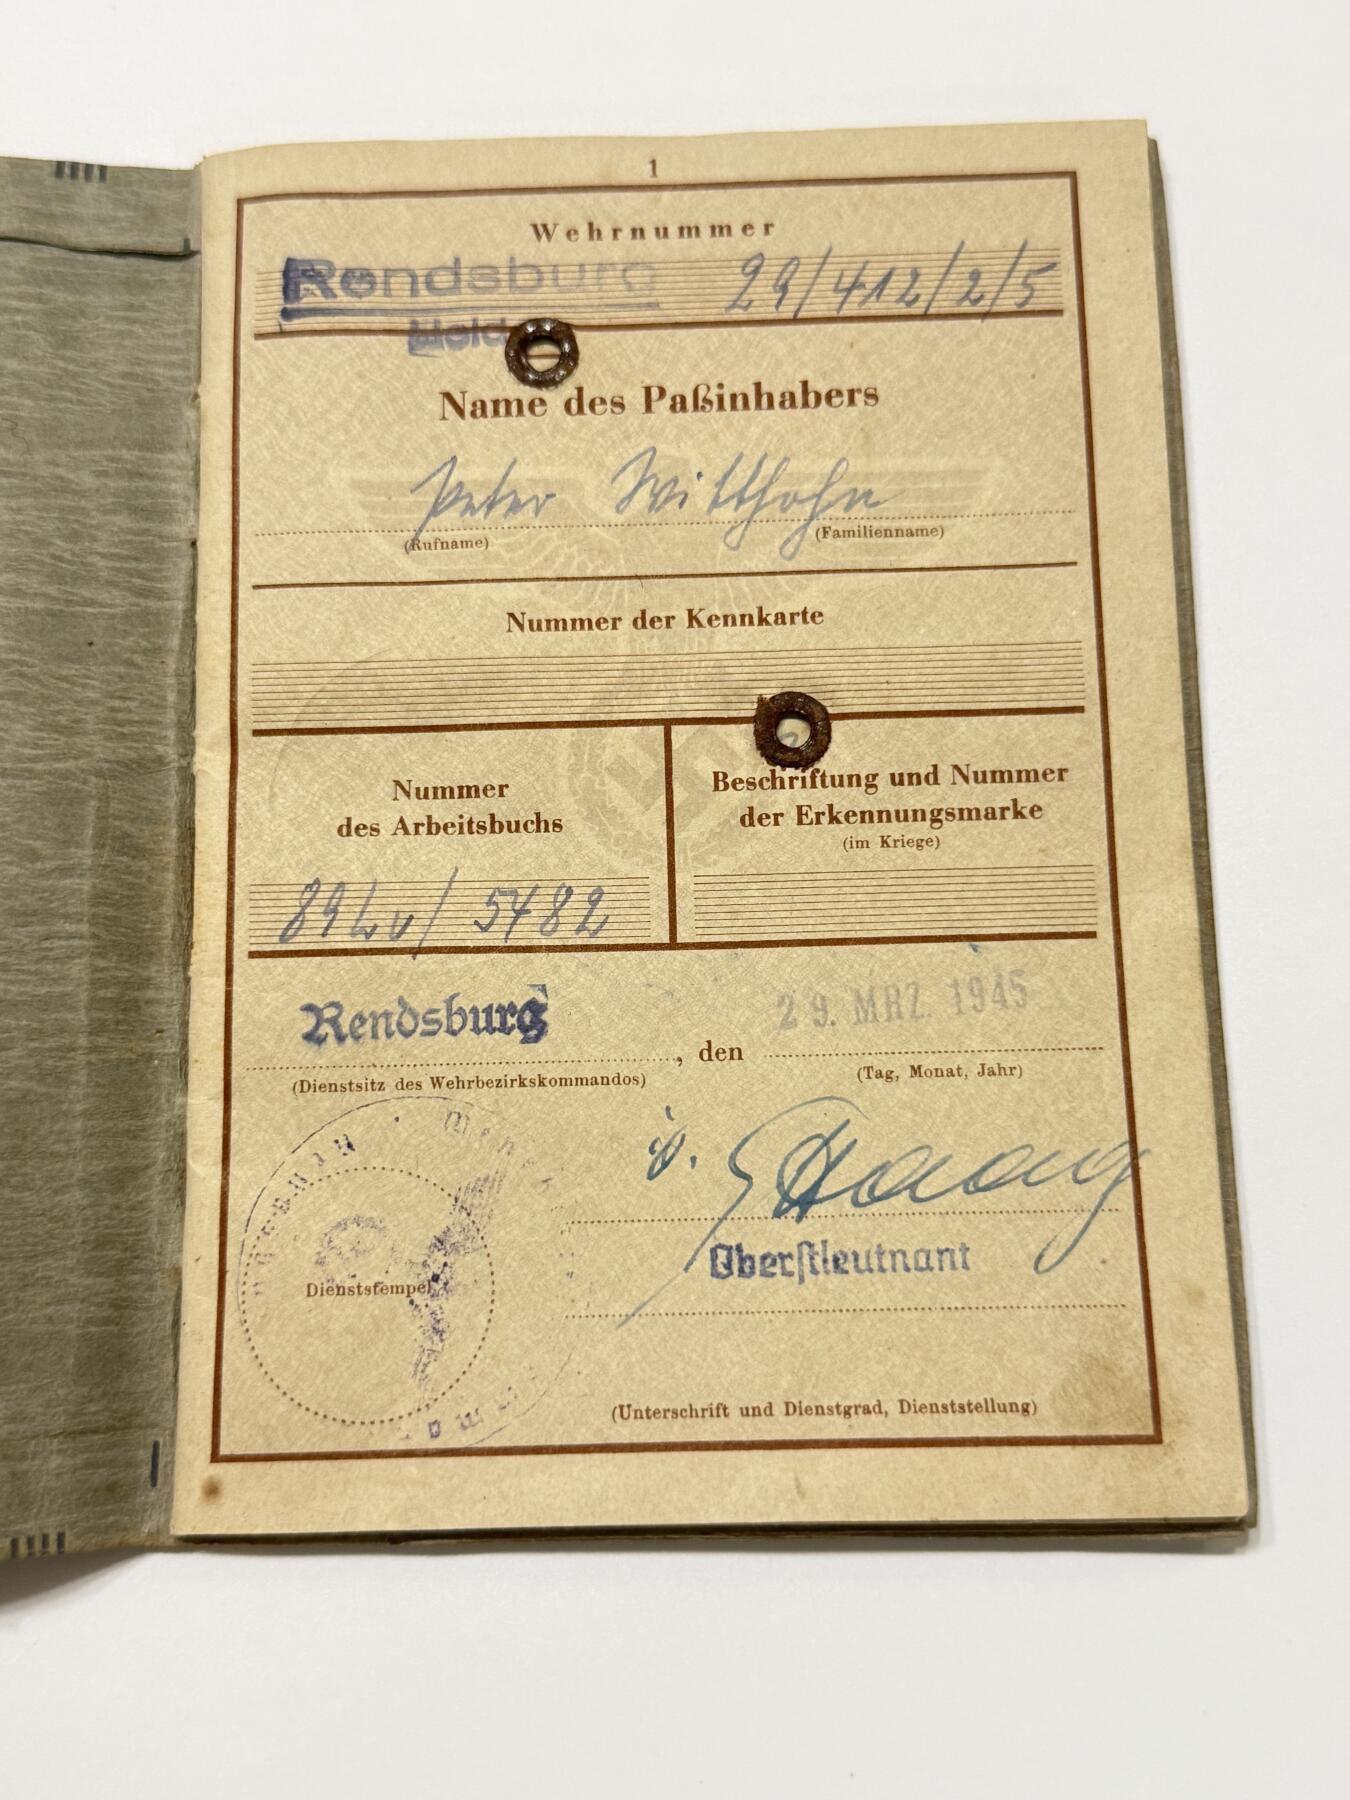 1
Wehrnummer
Rendsburg 29/412/2/5
Meld
Name des Paßinhabers
Peter Witthohn
(Rufname) (Familienname)
Nummer der Kennkarte
Nummer
des Arbeitsbuchs
Beschriftung und Nummer
der Erkennungsmarke
(im Kriege)
89 / 5482
Rendsburg, den 29. MRZ. 1945
(Dienstsitz des Wehrbezirkskommandos) (Tag, Monat, Jahr)
Dienststempel
Oberstleutnant
(Unterschrift und Dienstgrad, Dienststellung)